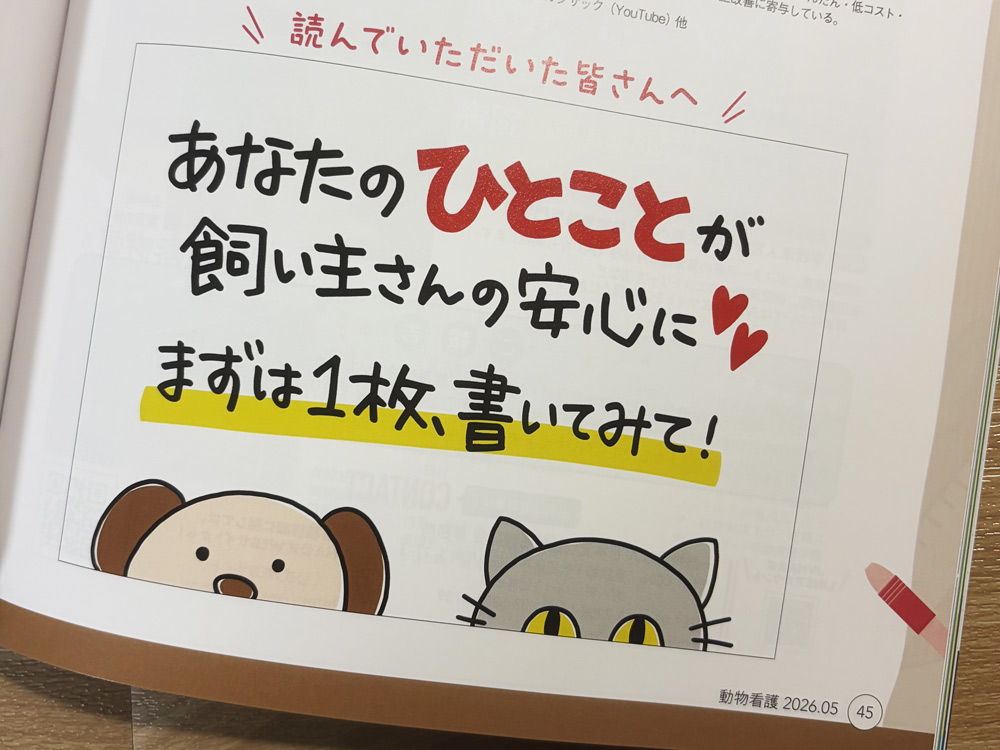 んたん・低コスト・
ック（YouTube）他
改善に寄与している。
読んでいただいた皆さんへ
あなたのひとことが
飼い主さんの安心に
まずは1枚、書いてみて！
動物看護 2026.05 45